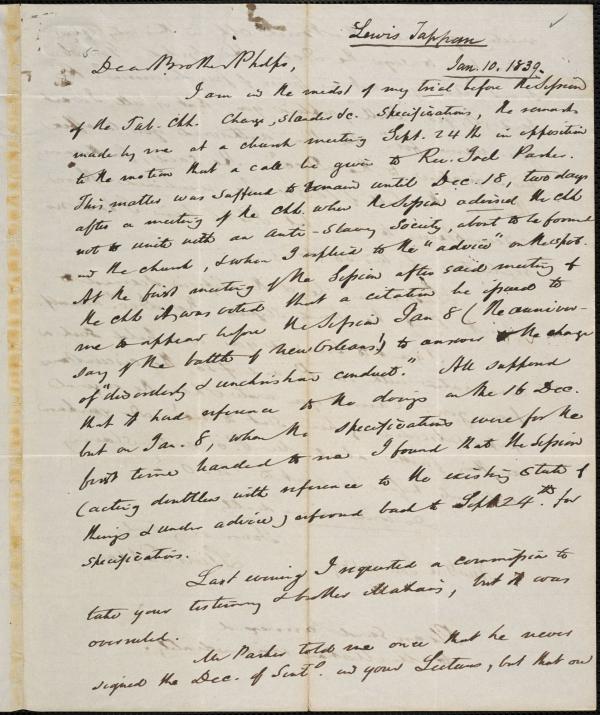 Lewis Tappan
Jan. 10. 1839.
Dear Brother Phelps,
I am in the midst of my trial before the Session
of the Tab. Chh. Charge, slander &c. Specifications, the remarks
made by me at a church meeting Sept. 24th in opposition
to the motion that a call be given to Rev. Joel Parker.
This matter was suffered to remain until Dec. 18, two days
after a meeting of the Chh. when the Session advised the chh
not to unite with an Anti-Slavery Society, about to be formed
in the church, & when I replied to the "advice" on the spot.
At the first meeting of the Session after said meeting of
the chh it was voted that a citation be issued to
me to appear before the Session Jan 8 (the anniver-
sary of the battle of New Orleans!) to answer to the charge
of "disorderly & unchristian conduct." All supposed
that it had reference to the doings on the 16 Dec.
but on Jan. 8, when the specifications were for the
first time handed to me I found that the Session
(acting doubtless with reference to the existing state of
things & under advice) referred back to Sept. 24th. for
specifications.
Last evening I requested a commission to
take your testimony & brother Mahan's, but it was
overruled.
Mr Parker told me once that he never
signed the Dec. of Sent. in your Lectures, but that on